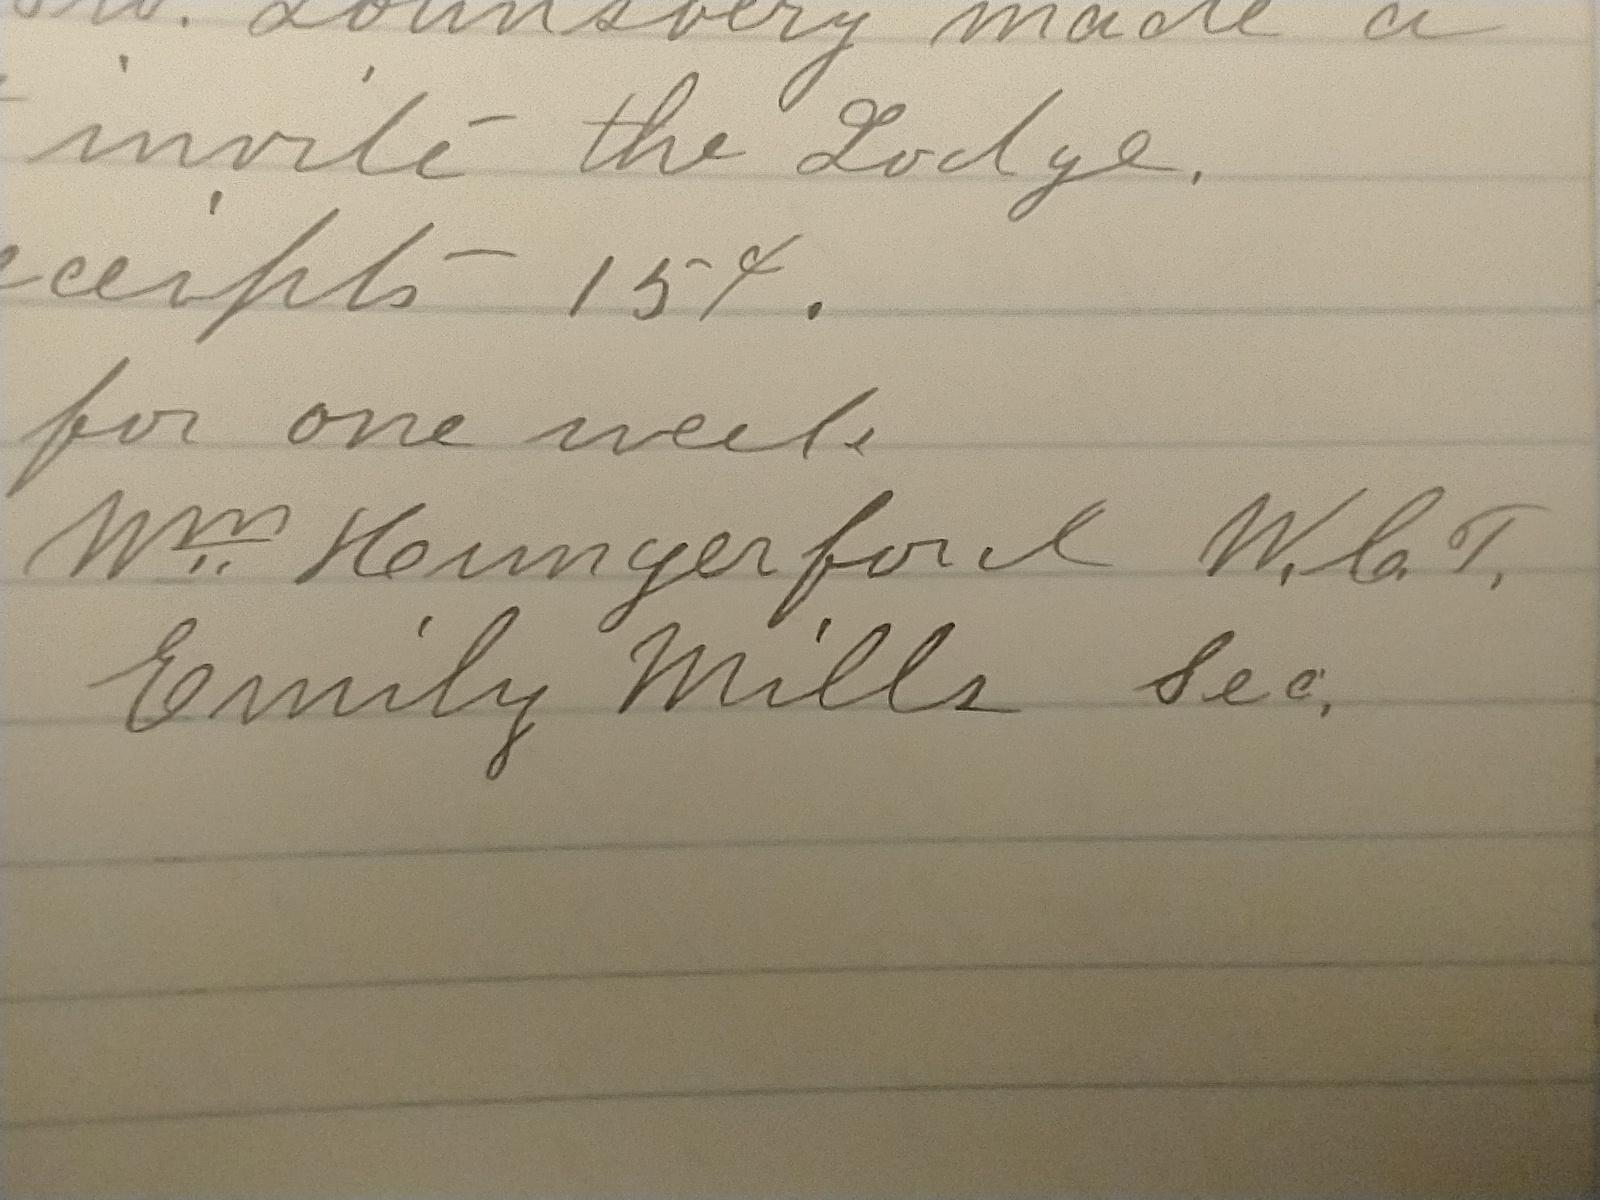 Bro. Lounsbery made a
invite the Lodge.
eceipts 15¢.
for one week
Wm. Hungerford W.C.T.
Emily Mills Sec.